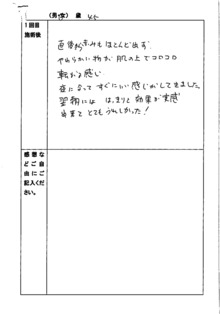 (男・女) 歳 45
1回目
施術後
直後赤みもほとんど出ず、
やわらかい物が肌の上でコロコロ
転がる感じ
夜になってすぐにいい感じがしてきました
翌朝には はっきりと効果が実感
出来てとてもうれしかった!
感想な
どご自
由にご
記入くだ
さい。